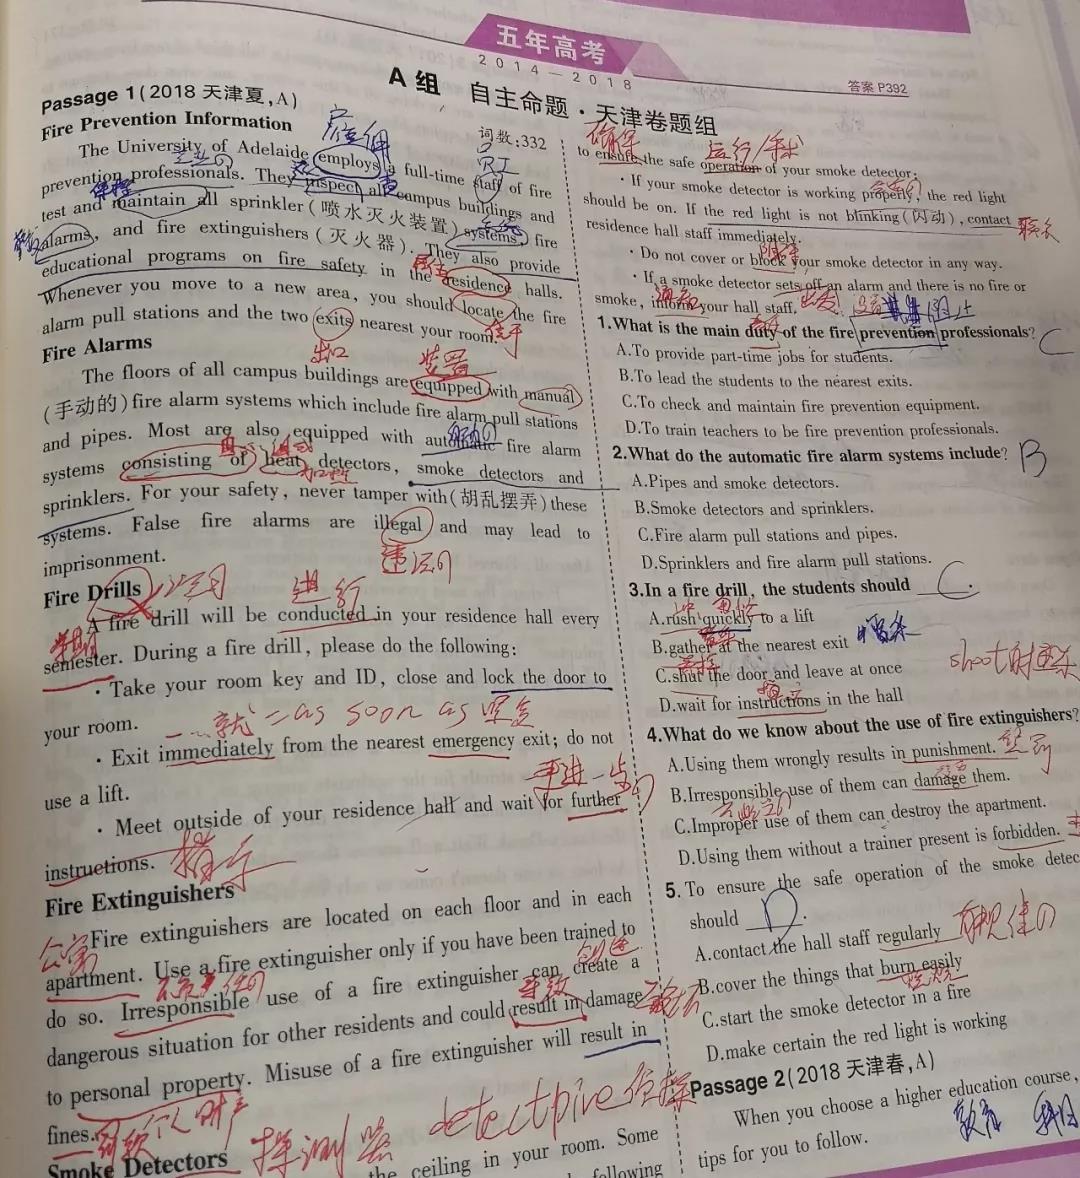 五年高考
2014—2018
答案 P392
A 组 自主命题·天津卷题组
Passage 1(2018 天津夏,A)
词数:332
Fire Prevention Information
The University of Adelaide employs a full-time staff of fire
prevention professionals. They inspect all campus buildings and
test and maintain all sprinkler(喷水灭火装置)systems, fire
alarms, and fire extinguishers(灭火器). They also provide
educational programs on fire safety in the residence halls.
Whenever you move to a new area, you should locate the fire
alarm pull stations and the two exits nearest your room.
出口
Fire Alarms
装置
The floors of all campus buildings are equipped with manual
(手动的)fire alarm systems which include fire alarm pull stations
and pipes. Most are also equipped with automatic fire alarm
systems consisting of heat detectors, smoke detectors and
sprinklers. For your safety, never tamper with(胡乱摆弄)these
systems. False fire alarms are illegal and may lead to
imprisonment.
违法的
Fire Drills
进行
A fire drill will be conducted in your residence hall every
学期
semester. During a fire drill, please do the following:
· Take your room key and ID, close and lock the door to
your room.
一…就 = as soon as
· Exit immediately from the nearest emergency exit; do not
use a lift.
更进一步的
· Meet outside of your residence hall and wait for further
instructions.
指示
Fire Extinguishers
Fire extinguishers are located on each floor and in each
公寓
apartment. Use a fire extinguisher only if you have been trained to
创造
do so. Irresponsible use of a fire extinguisher can create a
不负责任的
导致
dangerous situation for other residents and could result in damage
to personal property. Misuse of a fire extinguisher will result in
个人财产
fines.
罚款
detectpive 侦探
Smoke Detectors
探测器
the ceiling in your room. Some
following
确保
运行/手术
to ensure the safe operation of your smoke detector:
· If your smoke detector is working properly, the red light
should be on. If the red light is not blinking(闪动), contact
联系
residence hall staff immediately.
· Do not cover or block your smoke detector in any way.
· If a smoke detector sets off an alarm and there is no fire or
通知
smoke, inform your hall staff.
出发
阻止
1.What is the main duty of the fire prevention professionals?
C
A.To provide part-time jobs for students.
B.To lead the students to the nearest exits.
C.To check and maintain fire prevention equipment.
D.To train teachers to be fire prevention professionals.
2.What do the automatic fire alarm systems include?
B
A.Pipes and smoke detectors.
B.Smoke detectors and sprinklers.
C.Fire alarm pull stations and pipes.
D.Sprinklers and fire alarm pull stations.
3.In a fire drill, the students should C.
A.rush quickly to a lift
B.gather at the nearest exit
C.shut the door and leave at once
shoot 射
D.wait for instructions in the hall
4.What do we know about the use of fire extinguishers?
A.Using them wrongly results in punishment.
惩罚
B.Irresponsible use of them can damage them.
C.Improper use of them can destroy the apartment.
D.Using them without a trainer present is forbidden.
5.To ensure the safe operation of the smoke detec
should D.
A.contact the hall staff regularly
有规律的
B.cover the things that burn easily
燃烧
C.start the smoke detector in a fire
D.make certain the red light is working
Passage 2(2018 天津春,A)
When you choose a higher education course,
教育
tips for you to follow.